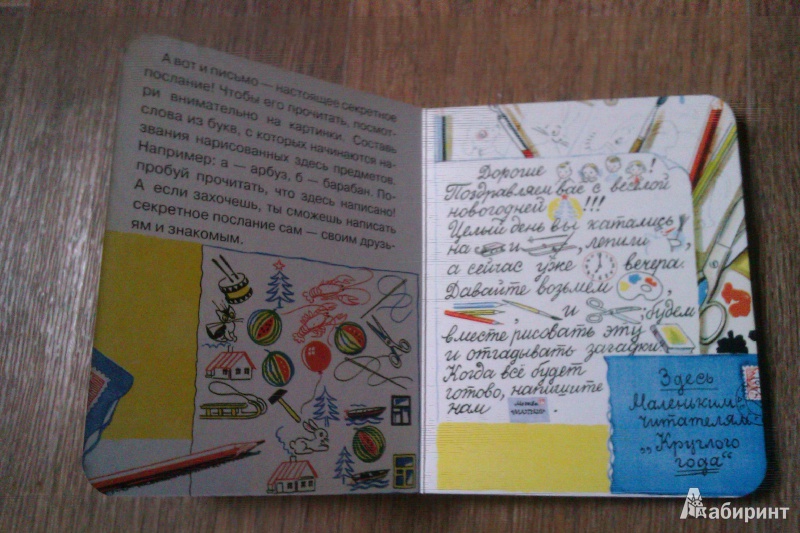 А вот и письмо — настоящее секретное
послание! Чтобы его прочитать, посмот-
ри внимательно на картинки. Составь
слова из букв, с которых начинаются на-
звания нарисованных здесь предметов.
Например: а — арбуз, б — барабан. По-
пробуй прочитать, что здесь написано!
А если захочешь, ты сможешь написать
секретное послание сам — своим друзь-
ям и знакомым.
Дорогие !
Поздравляем вас с весёлой
новогодней !!!
Целый день вы катались
на и , лепили ,
а сейчас уже вечера.
Давайте возьмём
, и будем
вместе рисовать эту
и отгадывать загадки.
Когда всё будет
готово, напишите
нам .
Здесь
Маленьким
читателям
„Круглого
года“
Лабиринт